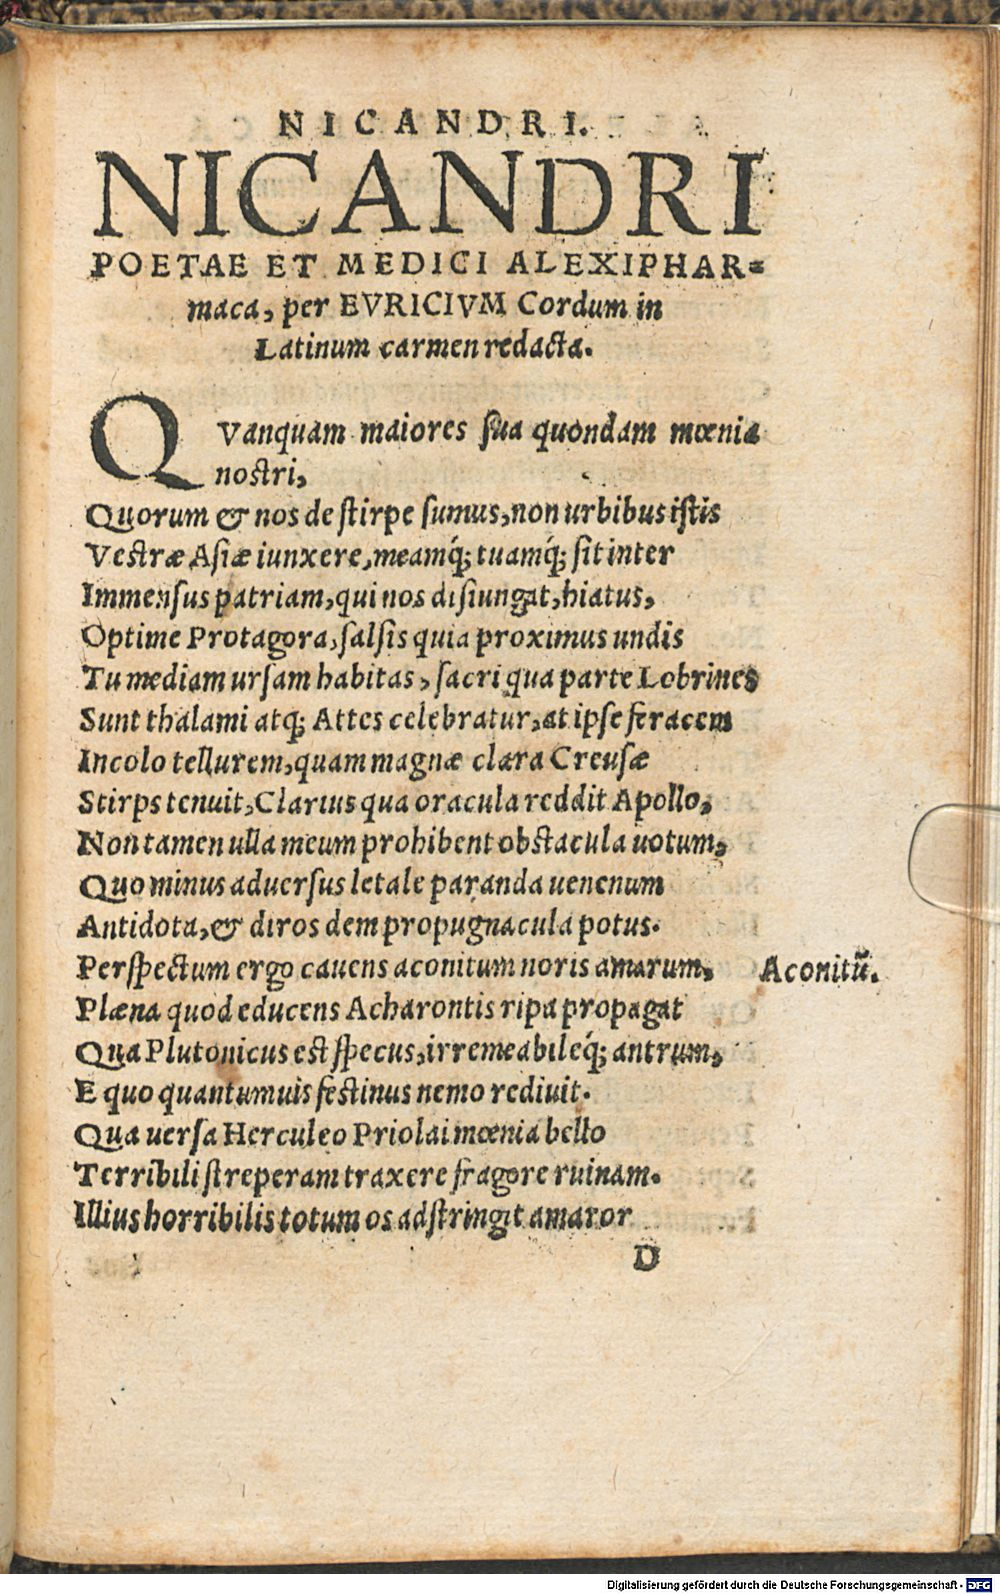 NICANDRI.
NICANDRI
POETAE ET MEDICI ALEXIPHAR-
maca, per EVRICIVM Cordum in
Latinum carmen redacta.
QVanquam maiores sua quondam mœnia
nostri,
Quorum & nos de stirpe sumus, non urbibus istis
Vestræ Asiæ iunxere, meamq́; tuamq́; sit inter
Immensus patriam, qui nos disiungat, hiatus,
Optime Protagora, salsis quia proximus undis
Tu mediam ursam habitas, sacri qua parte Lobrines
Sunt thalami atq; Attes celebratur, at ipse feracem
Incolo tellurem, quam magnæ clara Creusæ
Stirps tenuit, Clarius qua oracula reddit Apollo,
Non tamen ulla meum prohibent obstacula uotum,
Quo minus aduersus letale paranda uenenum
Antidota, & diros dem propugnacula potus.
Perspectum ergo cauens aconitum noris amarum, Aconitū.
Plæna quod educens Acharontis ripa propagat
Qua Plutonicus est specus, irremeabileq́; antrum,
E quo quantumuis festinus nemo rediuit.
Qua uersa Herculeo Priolai mœnia bello
Terribili streperam traxere fragore ruinam.
Illius horribilis totum os adstringit amaror
D
Digitalisierung gefördert durch die Deutsche Forschungsgemeinschaft - DFG